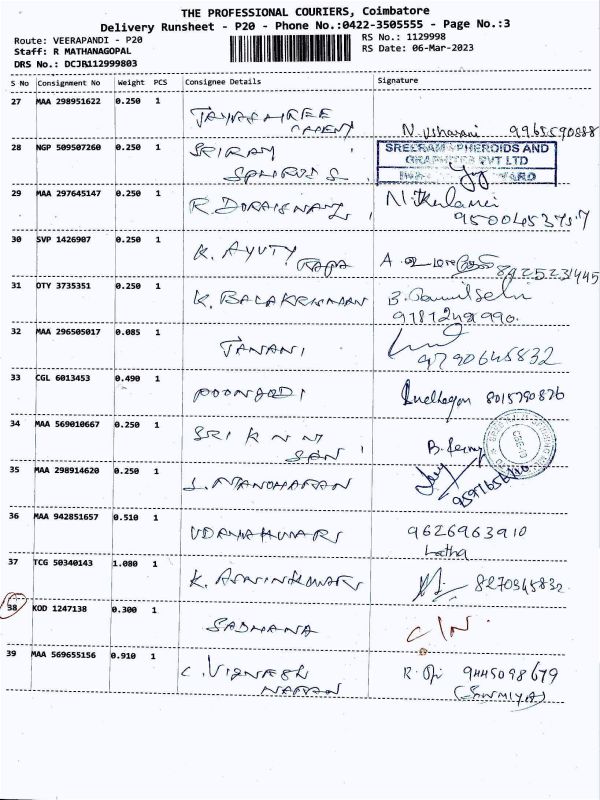 THE PROFESSIONAL COURIERS, Coimbatore
Delivery Runsheet - P20 - Phone No.:0422-3505555 - Page No.:3
Route: VEERAPANDI - P20
RS No.: 1129998
Staff: R MATHANAGOPAL
RS Date: 06-Mar-2023
DRS No.: DCJB112999803
S No Consignment No Weight PCS Consignee Details Signature
27 MAA 298951622 0.250 1 JAYASHREE
CEMENT N. Usharani 9965590888
28 NGP 509507260 0.250 1 SRIRAM
SREERAM SPHEROIDS AND
GRAPHITES PVT LTD
29 MAA 297645147 0.250 1 R. DORAISWAMY
30 SVP 1426907 0.250 1 K. AYUTY
RAJA A. 8925231445
31 OTY 3735351 0.250 1 K. BALAKRISHNAN B. Tamilselvi
32 MAA 296505017 0.085 1 JANANI 9790645832
33 CGL 6013453 0.490 1 POONGODI 8015790876
34 MAA 569010667 0.250 1 SRI K N N
SON B.
35 MAA 298914620 0.250 1 J. MANOHARAN
36 MAA 942851657 0.510 1 UDAYAKUMAR 9626963910
Latha
37 TCG 50340143 1.080 1 K. ASWINKUMAR 8270345832
38 KOD 1247138 0.300 1 SADHANA C/N
39 MAA 569655156 0.910 1 C. VIGNESH R. 9445098679
NATHAN (SOWMIYA)